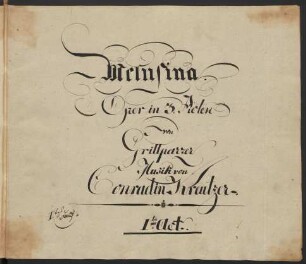 Melusina.
Oper in 3 Acten
von
Grillparzer
Musik von
Conradin Kreutzer.
1ter Act.